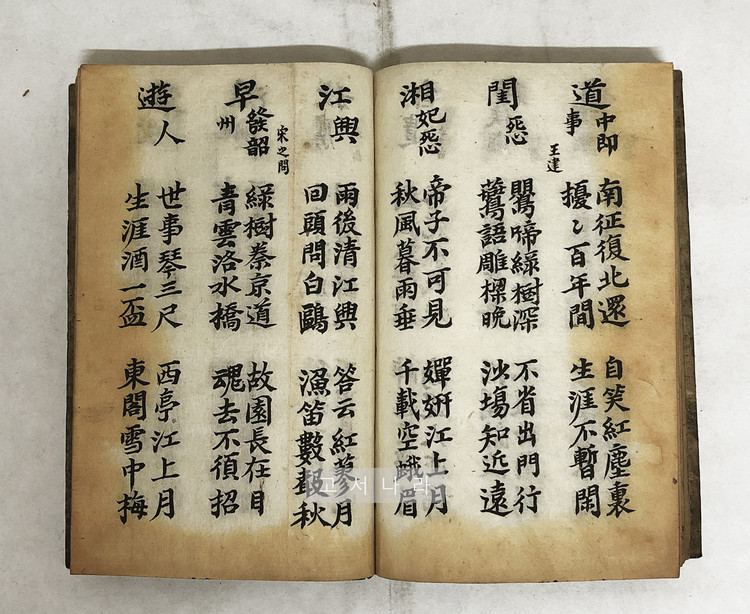 道中即事
南征復北還
擾〻百年間
自笑紅塵裏
生涯不暫閑
王建
閨怨
鸎啼綠樹深
鷰語雕樑晚
不省出門行
沙場知近遠
湘妃怨
帝子不可見
秋風暮雨垂
嬋姸江上月
千載空蛾眉
江興
雨後清江興
回頭問白鷗
答云紅蓼月
漁笛數聲秋
宋之問
早發韶州
綠樹秦京道
青雲洛水橋
故園長在目
魂去不須招
遊人
世事琴三尺
生涯酒一盃
西亭江上月
東閣雪中梅
고서나라